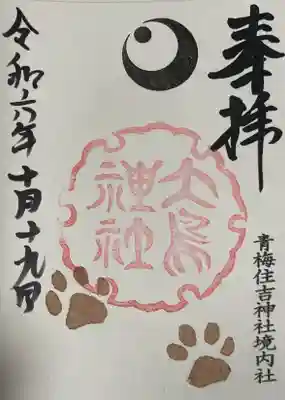 奉拝
青梅住吉神社境内社
大鳥神社
令和六年十月十九日